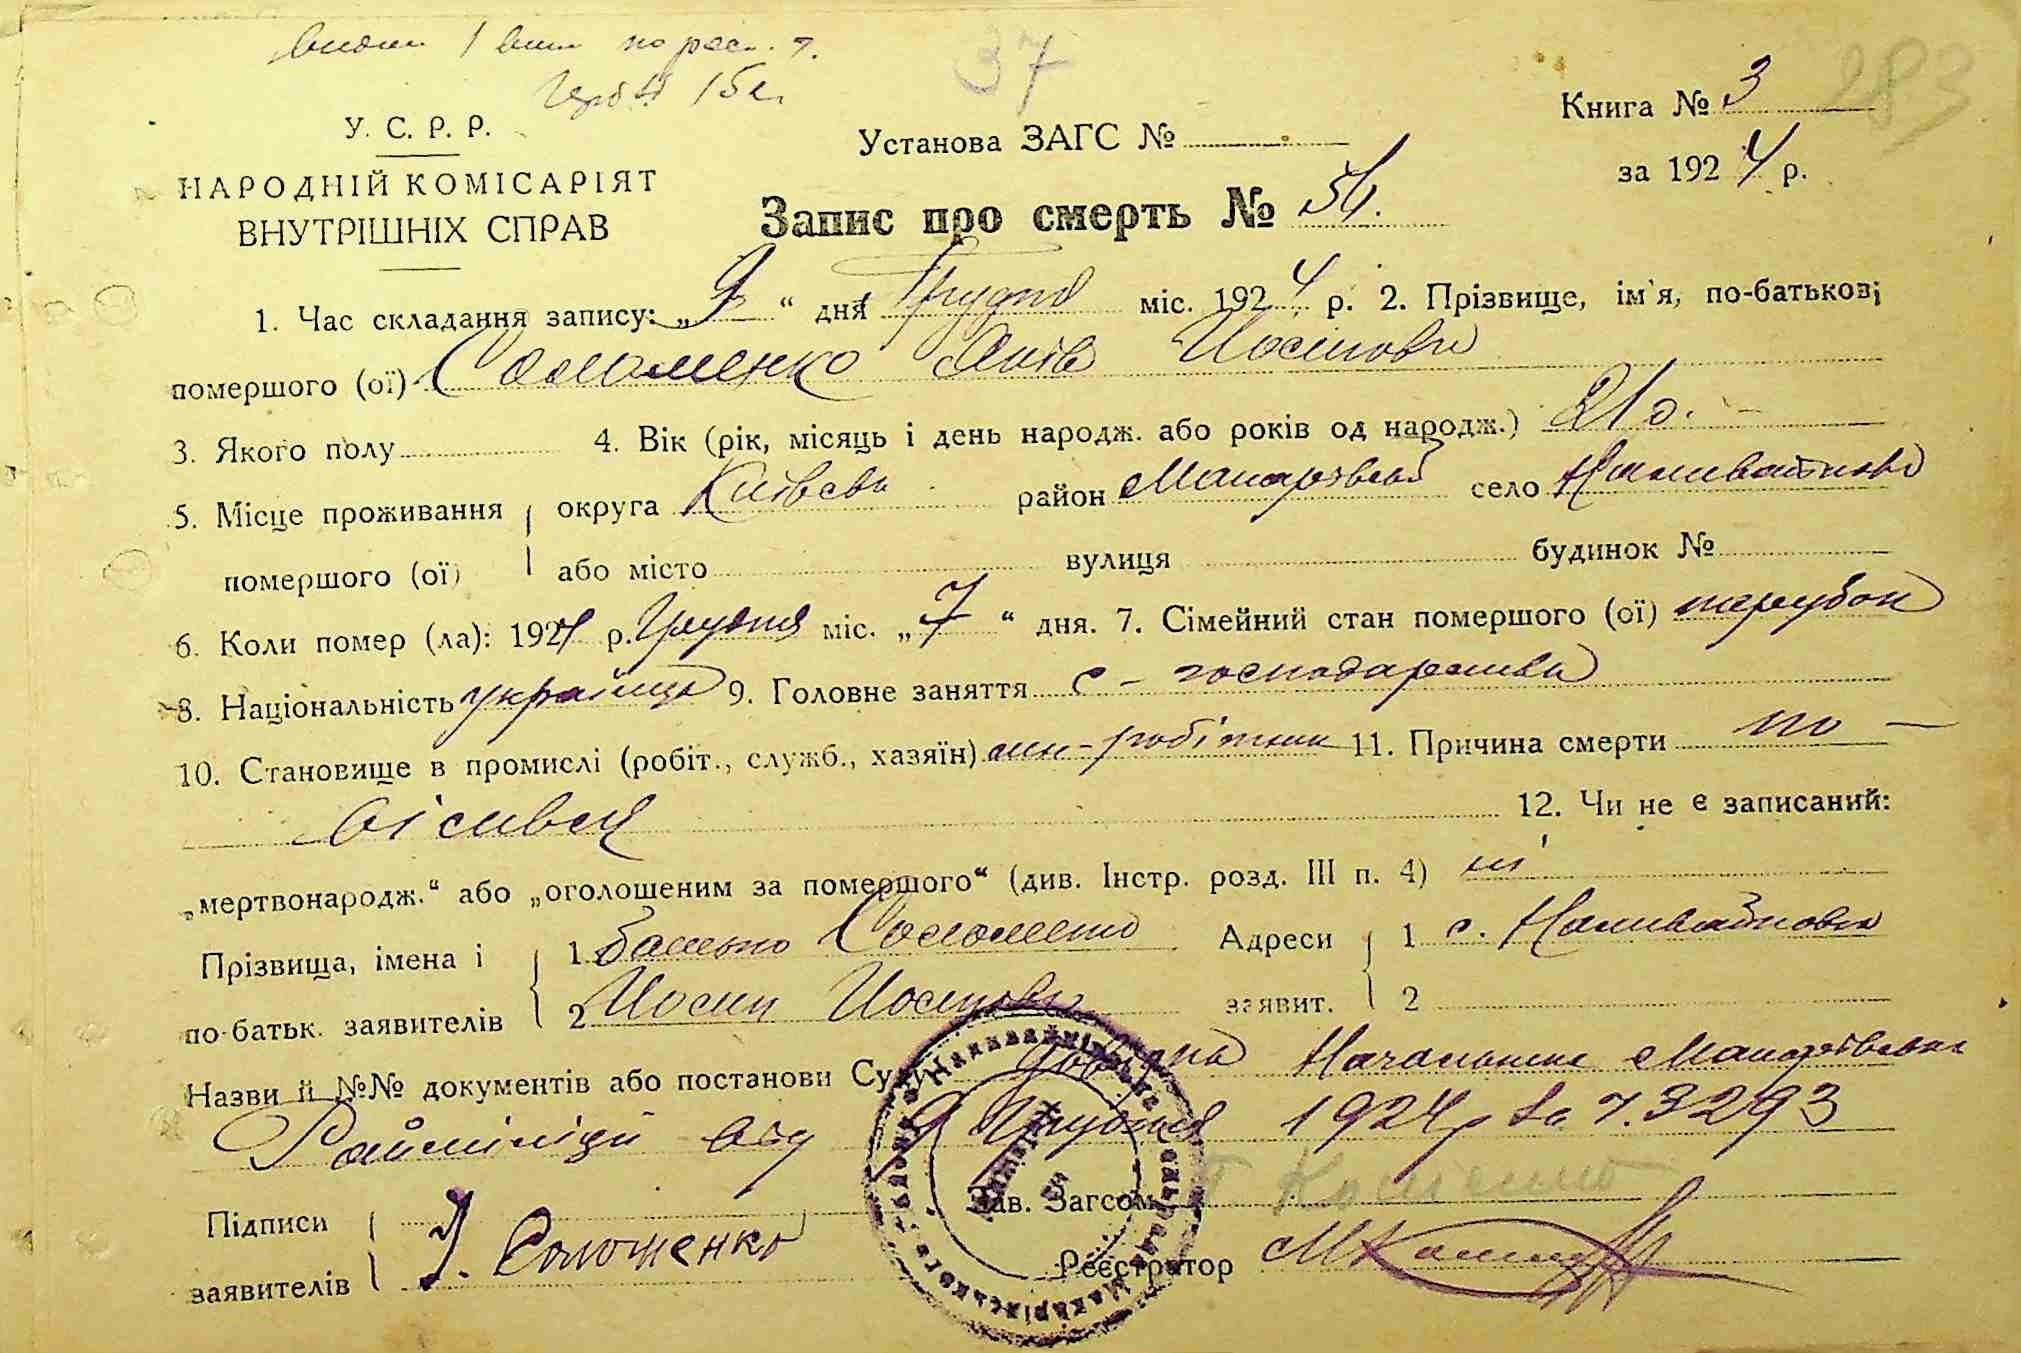 37
283
У. С. Р. Р.
НАРОДНІЙ КОМІСАРІЯТ
ВНУТРІШНІХ СПРАВ
Установа ЗАГС №
Книга № 3
за 1924 р.
Запис про смерть № 54.
1. Час складання запису: „9“ дня Грудня міс. 1924 р. 2. Прізвище, ім'я, по-батькові
помершого (ої) Соломенко Яків Йосипови
3. Якого полу 4. Вік (рік, місяць і день народж. або років од народж.) 21 р.
5. Місце проживання округа Київськ район Макарівськ село Наливайківк
помершого (ої) або місто вулиця будинок №
6. Коли помер (ла): 1924 р. Грудня міс. „7“ дня. 7. Сімейний стан помершого (ої) парубок
8. Національність українець 9. Головне заняття с-господарство
10. Становище в промислі (робіт., служб., хазяїн) робітник 11. Причина смерти по-
вісився 12. Чи не є записаний:
„мертвонародж.“ або „оголошеним за помершого“ (див. Інстр. розд. III п. 4) ні
Прізвища, імена і 1 батько Соломенко Адреси 1 с. Наливайковк
по-батьк. заявителів 2 Йосип Йосипови заявит. 2
Назви й №№ документів або постанови Суду Начальника Макарівськ
Райміліції від 9 Грудня 1924 р за ч. 3293
Підписи Зав. Загсом
заявителів Й. Соломенко Реєстратор